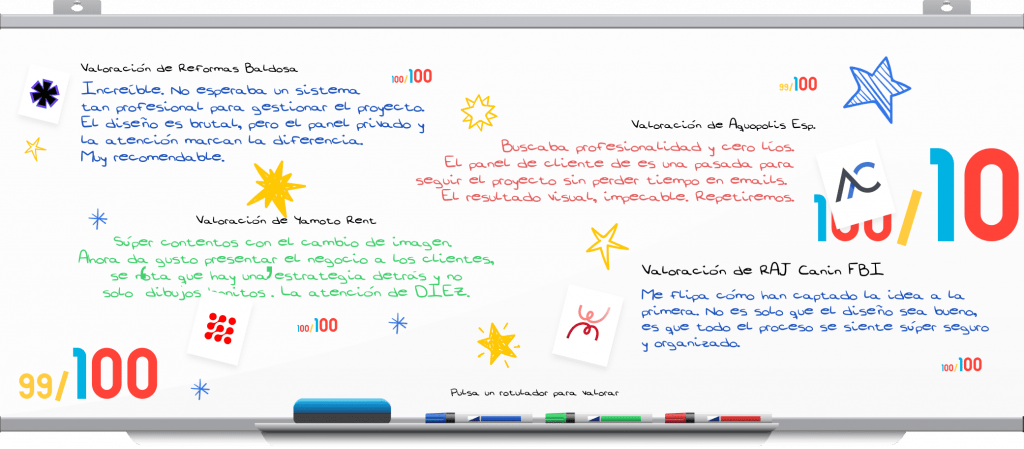 Valoración de Reformas Baldosa
100/100
Increíble. No esperaba un sistema
tan profesional para gestionar el proyecto.
El diseño es brutal, pero el panel privado y
la atención marcan la diferencia.
Muy recomendable.
99/100
Valoración de Aquopolis Esp.
Buscaba profesionalidad y cero líos.
El panel de cliente de es una pasada para
seguir el proyecto sin perder tiempo en emails.
El resultado visual, impecable. Repetiremos.
100/10
Valoración de Yamoto Rent
Súper contentos con el cambio de imagen.
Ahora da gusto presentar el negocio a los clientes,
se nota que hay una estrategia detrás y no
solo dibujos . La atención de DIEZ.
100/100
Valoración de RAJ Canin FBI
Me flipa cómo han captado la idea a la
primera. No es solo que el diseño sea bueno,
es que todo el proceso se siente súper seguro
y organizado.
100/100
99/100
Pulsa un rotulador para valorar